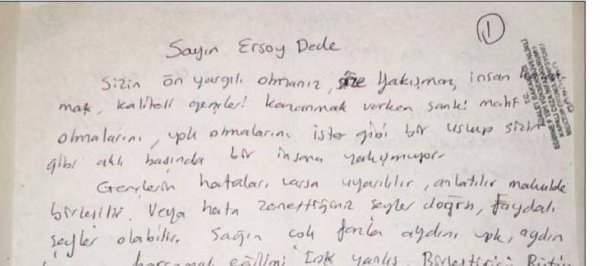 1
Sayın Ersoy Dede
Sizin ön yargılı olmanız, size Yakışmaz, insan
mak, kaliteli gençleri kazanmak varken sanki mahf
olmalarını, yok olmalarını ister gibi bir uslup sizin
gibi aklı başında bir insana yakışmıyor.
Gençlerin hataları varsa uyarılır, anlatılır makulde
birleşilir. Veya hata zannettiğiniz şeyler doğru, faydalı
şeyler olabilir. Sağın çok fazla aydını yok, aydın
harcamak eğilimi çok yanlış. Birleştirici